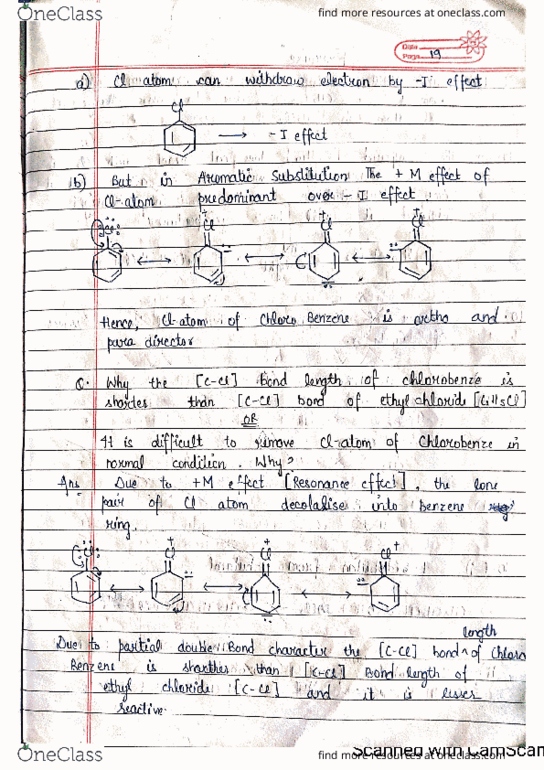 OneClass
find more resources at oneclass.com
Date
Page 19
a) Cl atom can withdraw electron by -I effect
Cl
→ -I effect
(b) But in Aromatic Substitution The + M effect of
Cl-atom predominant over - I effect
Hence, Cl-atom of Chloro Benzene is ortho and
para director
Q. Why the [C-Cl] bond length of chlorobenze is
shorter than [C-Cl] bond of ethyl chloride [C2H5Cl]
OR
It is difficult to remove Cl-atom of Chlorobenze in
normal condition. Why?
Ans Due to +M effect [Resonance effect], the lone
pair of Cl atom decolalise into benzene
ring.
length
Due to partial double Bond character the [C-Cl] bond ^ of Chloro
Benzene is shorther than [C-Cl] Bond length of
ethyl chloride [C-Cl] and it is lesser
reactive.
Scanned with CamScan
OneClass
find more resources at oneclass.com